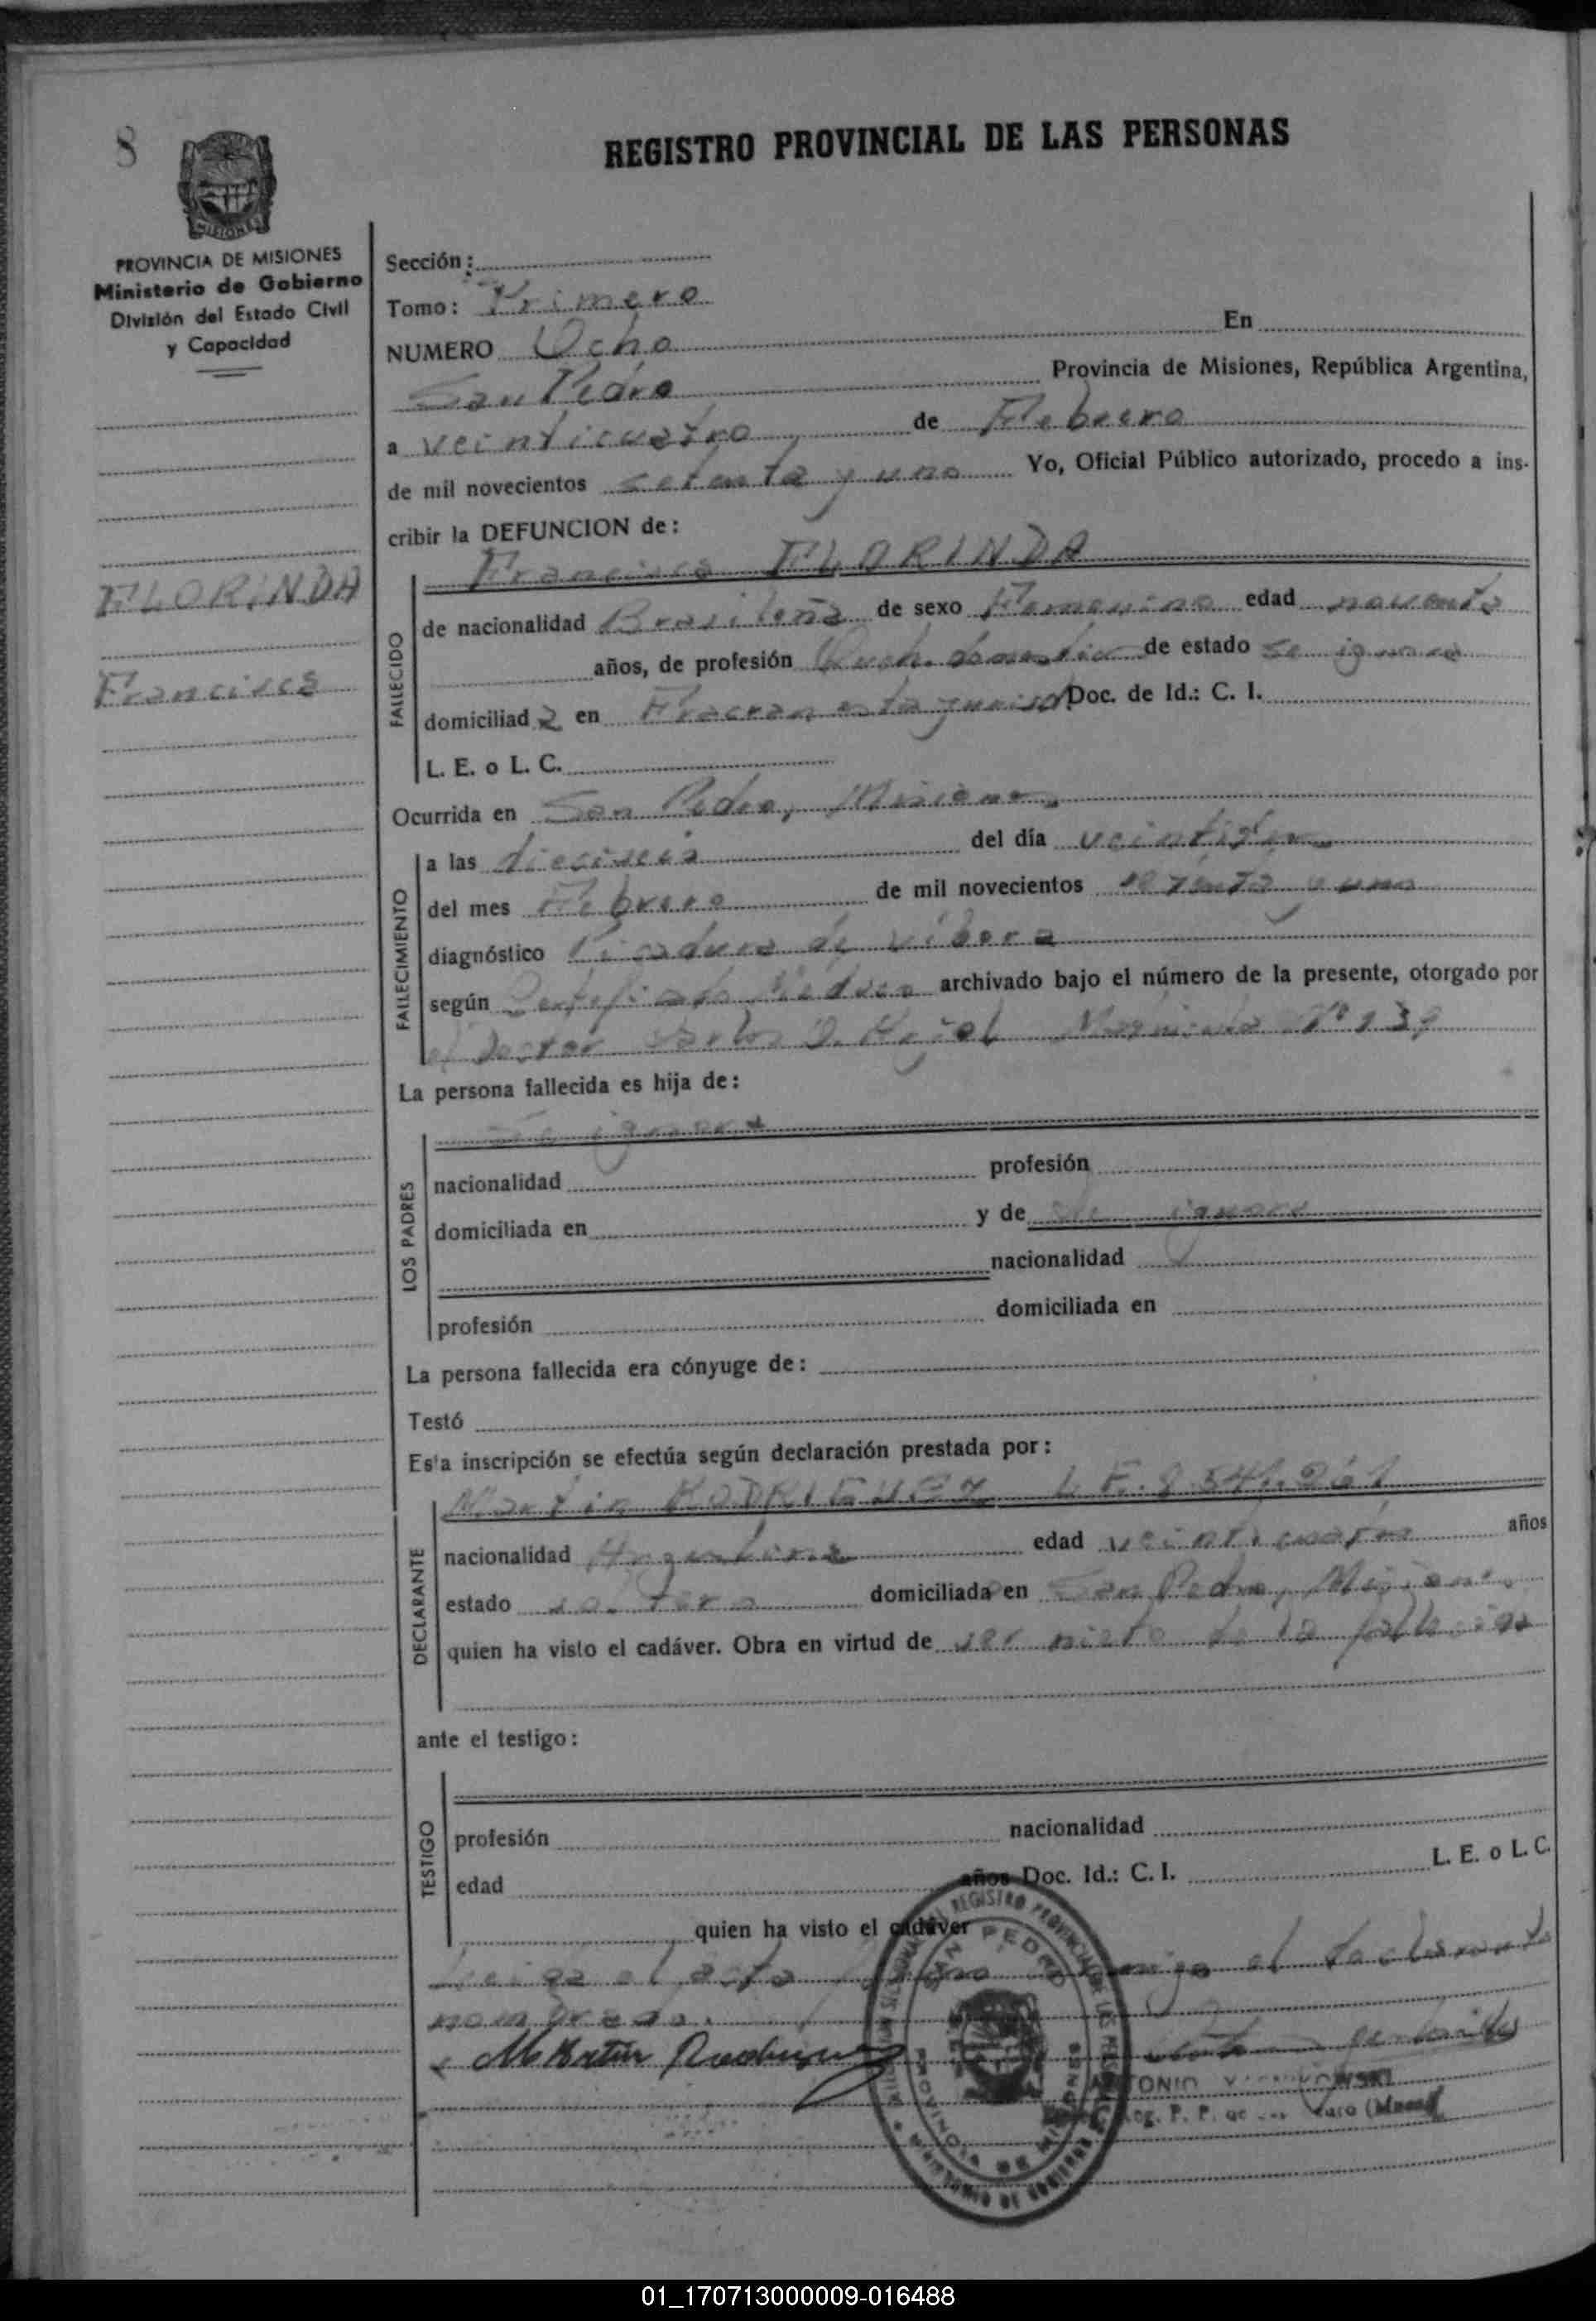 8
REGISTRO PROVINCIAL DE LAS PERSONAS
MISIONES
PROVINCIA DE MISIONES
Ministerio de Gobierno
División del Estado Civil
y Capacidad
FLORINDA
Francisca
Sección:
Tomo: Primero
NUMERO Ocho En
San Pedro Provincia de Misiones, República Argentina,
a veinticuatro de Febrero
de mil novecientos setenta y uno Yo, Oficial Público autorizado, procedo a ins-
cribir la DEFUNCION de:
Francisca FLORINDA
FALLECIDO
de nacionalidad Brasileña de sexo Femenino edad noventa
años, de profesión domestico de estado se ignora
domiciliada en Fracran Doc. de Id.: C. I.
L. E. o L. C.
Ocurrida en San Pedro, Misiones
FALLECIMIENTO
a las dieciseis del día
del mes Febrero de mil novecientos setenta y uno
diagnóstico Picadura de vibora
según Certificado Médico archivado bajo el número de la presente, otorgado por
el Doctor Carlos Nº 139
La persona fallecida es hija de:
LOS PADRES
Se ignora
nacionalidad profesión
domiciliada en y de Se ignora
nacionalidad
profesión domiciliada en
La persona fallecida era cónyuge de:
Testó
Esta inscripción se efectúa según declaración prestada por:
DECLARANTE
Martin RODRIGUEZ L. E. 8.541.261
nacionalidad Argentina edad veinticuatro años
estado soltero domiciliada en San Pedro, Misiones
quien ha visto el cadáver. Obra en virtud de ser nieto de la fallecida
ante el testigo:
TESTIGO
profesión nacionalidad
edad años Doc. Id.: C. I. L. E. o L. C.
quien ha visto el cadáver
Leida el acta el declarante
nombrado.
Martin Rodriguez
SAN PEDRO
PROVINCIA DE MISIONES
ANTONIO
01_170713000009-016488